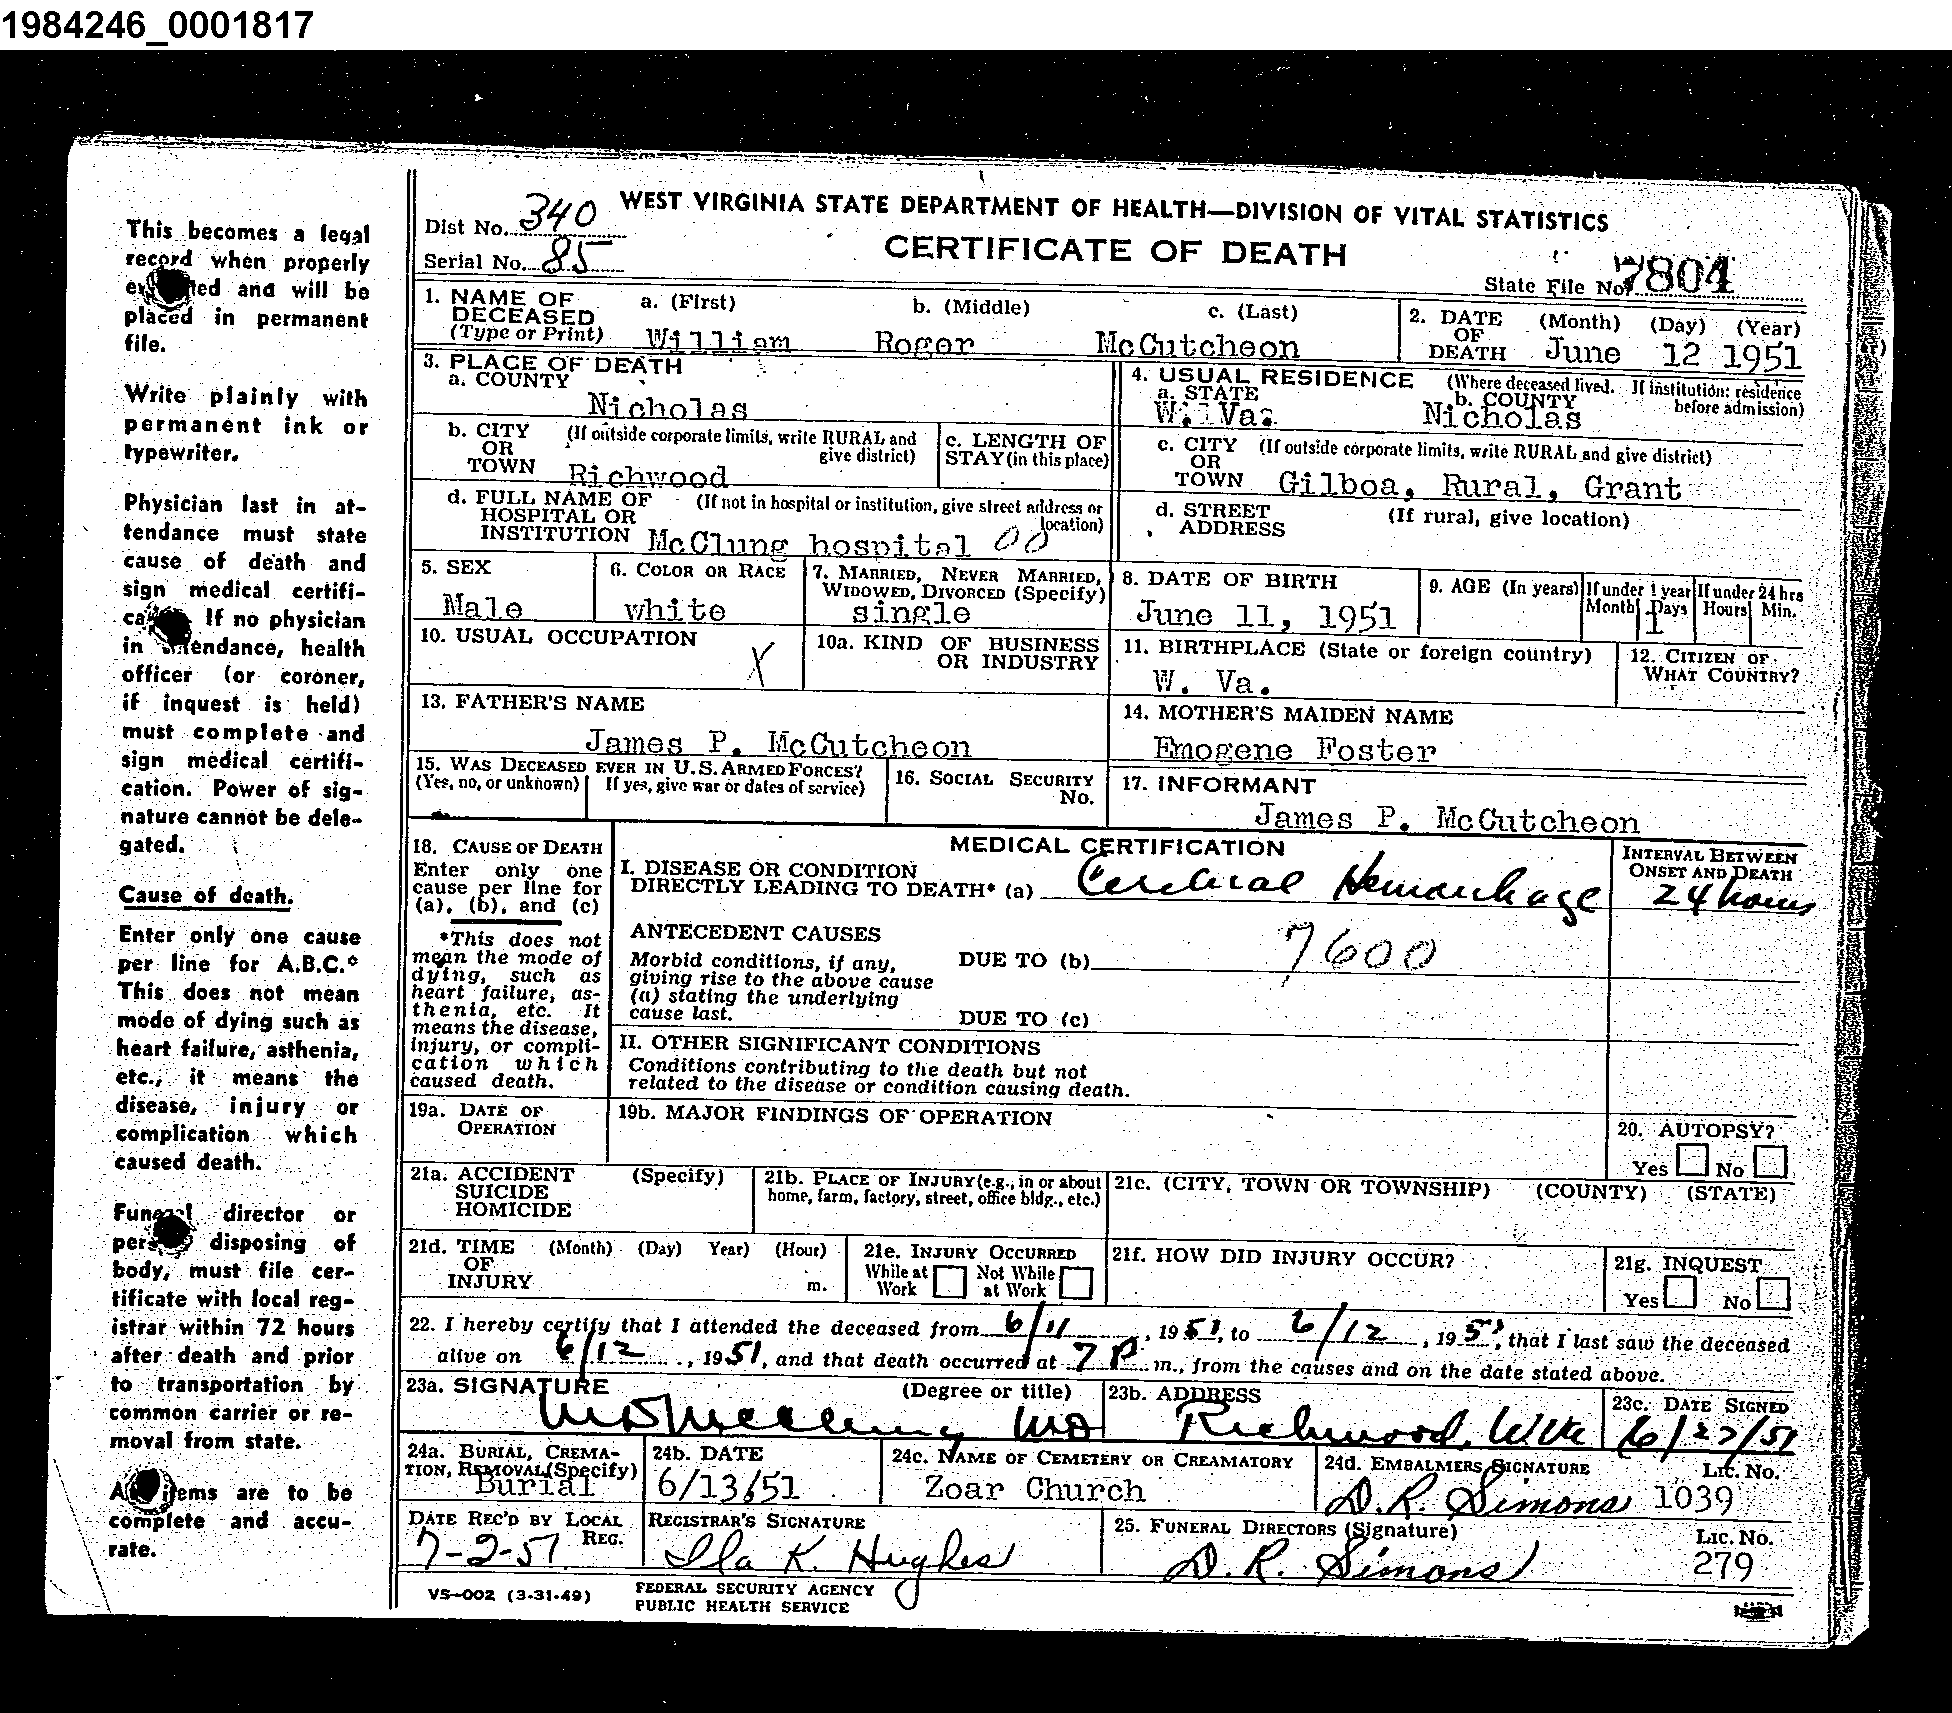 1984246_0001817
This becomes a legal
record when properly
ex ted and will be
placed in permanent
file.
Write plainly with
permanent ink or
typewriter.
Physician last in at-
tendance must state
cause of death and
sign medical certifi-
ca If no physician
in attendance, health
officer (or coroner,
if inquest is held)
must complete and
sign medical certifi-
cation. Power of sig-
nature cannot be dele-
gated.
Cause of death.
Enter only one cause
per line for A.B.C.*
This does not mean
mode of dying such as
heart failure, asthenia,
etc., it means the
disease, injury or
complication which
caused death.
Funeral director or
pers disposing of
body, must file cer-
tificate with local reg-
istrar within 72 hours
after death and prior
to transportation by
common carrier or re-
moval from state.
A items are to be
complete and accu-
rate.
WEST VIRGINIA STATE DEPARTMENT OF HEALTH—DIVISION OF VITAL STATISTICS
Dist No. 340
CERTIFICATE OF DEATH
Serial No. 85
State File No. 7804
1. NAME OF DECEASED (Type or Print) a. (First) b. (Middle) c. (Last)
William Roger McCutcheon
2. DATE OF DEATH (Month) (Day) (Year)
June 12 1951
3. PLACE OF DEATH
a. COUNTY
Nicholas
4. USUAL RESIDENCE (Where deceased lived. If institution: residence before admission)
a. STATE b. COUNTY
W. Va. Nicholas
b. CITY OR TOWN (If outside corporate limits, write RURAL and give district)
Richwood
c. LENGTH OF STAY (in this place)
c. CITY OR TOWN (If outside corporate limits, write RURAL and give district)
Gilboa, Rural, Grant
d. FULL NAME OF HOSPITAL OR INSTITUTION (If not in hospital or institution, give street address or location)
McClung hospital 00
d. STREET ADDRESS (If rural, give location)
5. SEX
Male
6. COLOR OR RACE
white
7. MARRIED, NEVER MARRIED, WIDOWED, DIVORCED (Specify)
single
8. DATE OF BIRTH
June 11, 1951
9. AGE (In years) If under 1 year If under 24 hrs
Month Days Hours Min.
1
10. USUAL OCCUPATION
X
10a. KIND OF BUSINESS OR INDUSTRY
11. BIRTHPLACE (State or foreign country)
W. Va.
12. CITIZEN OF WHAT COUNTRY?
13. FATHER'S NAME
James P. McCutcheon
14. MOTHER'S MAIDEN NAME
Emogene Foster
15. WAS DECEASED EVER IN U.S. ARMED FORCES?
(Yes, no, or unknown) If yes, give war or dates of service)
16. SOCIAL SECURITY No.
17. INFORMANT
James P. McCutcheon
18. CAUSE OF DEATH
Enter only one
cause per line for
(a), (b), and (c)
*This does not
mean the mode of
dying, such as
heart failure, as-
thenia, etc. It
means the disease,
injury, or compli-
cation which
caused death.
MEDICAL CERTIFICATION
INTERVAL BETWEEN ONSET AND DEATH
I. DISEASE OR CONDITION
DIRECTLY LEADING TO DEATH* (a) Cerebral Hemorrhage 24 hours
ANTECEDENT CAUSES
Morbid conditions, if any,
giving rise to the above cause
(a) stating the underlying
cause last.
DUE TO (b) 7600
DUE TO (c)
II. OTHER SIGNIFICANT CONDITIONS
Conditions contributing to the death but not
related to the disease or condition causing death.
19a. DATE OF OPERATION
19b. MAJOR FINDINGS OF OPERATION
20. AUTOPSY?
Yes No
21a. ACCIDENT SUICIDE HOMICIDE (Specify)
21b. PLACE OF INJURY (e.g., in or about home, farm, factory, street, office bldg., etc.)
21c. (CITY, TOWN OR TOWNSHIP) (COUNTY) (STATE)
21d. TIME OF INJURY (Month) (Day) Year) (Hour) m.
21e. INJURY OCCURRED
While at Work Not While at Work
21f. HOW DID INJURY OCCUR?
21g. INQUEST
Yes No
22. I hereby certify that I attended the deceased from 6/11, 1951, to 6/12, 1951, that I last saw the deceased
alive on 6/12, 1951, and that death occurred at 7 P m., from the causes and on the date stated above.
23a. SIGNATURE (Degree or title)
MD
23b. ADDRESS
Richwood, W Va
23c. DATE SIGNED
6/27/51
24a. BURIAL, CREMA-
TION, REMOVAL (Specify)
Burial
24b. DATE
6/13/51
24c. NAME OF CEMETERY OR CREAMATORY
Zoar Church
24d. EMBALMERS SIGNATURE Lic. No.
D. R. Simons 1039
DATE REC'D BY LOCAL REG.
7-2-51
REGISTRAR'S SIGNATURE
Ila K. Hughes
25. FUNERAL DIRECTORS (Signature) Lic. No.
D. R. Simons 279
VS-002 (3-31-49)
FEDERAL SECURITY AGENCY
PUBLIC HEALTH SERVICE